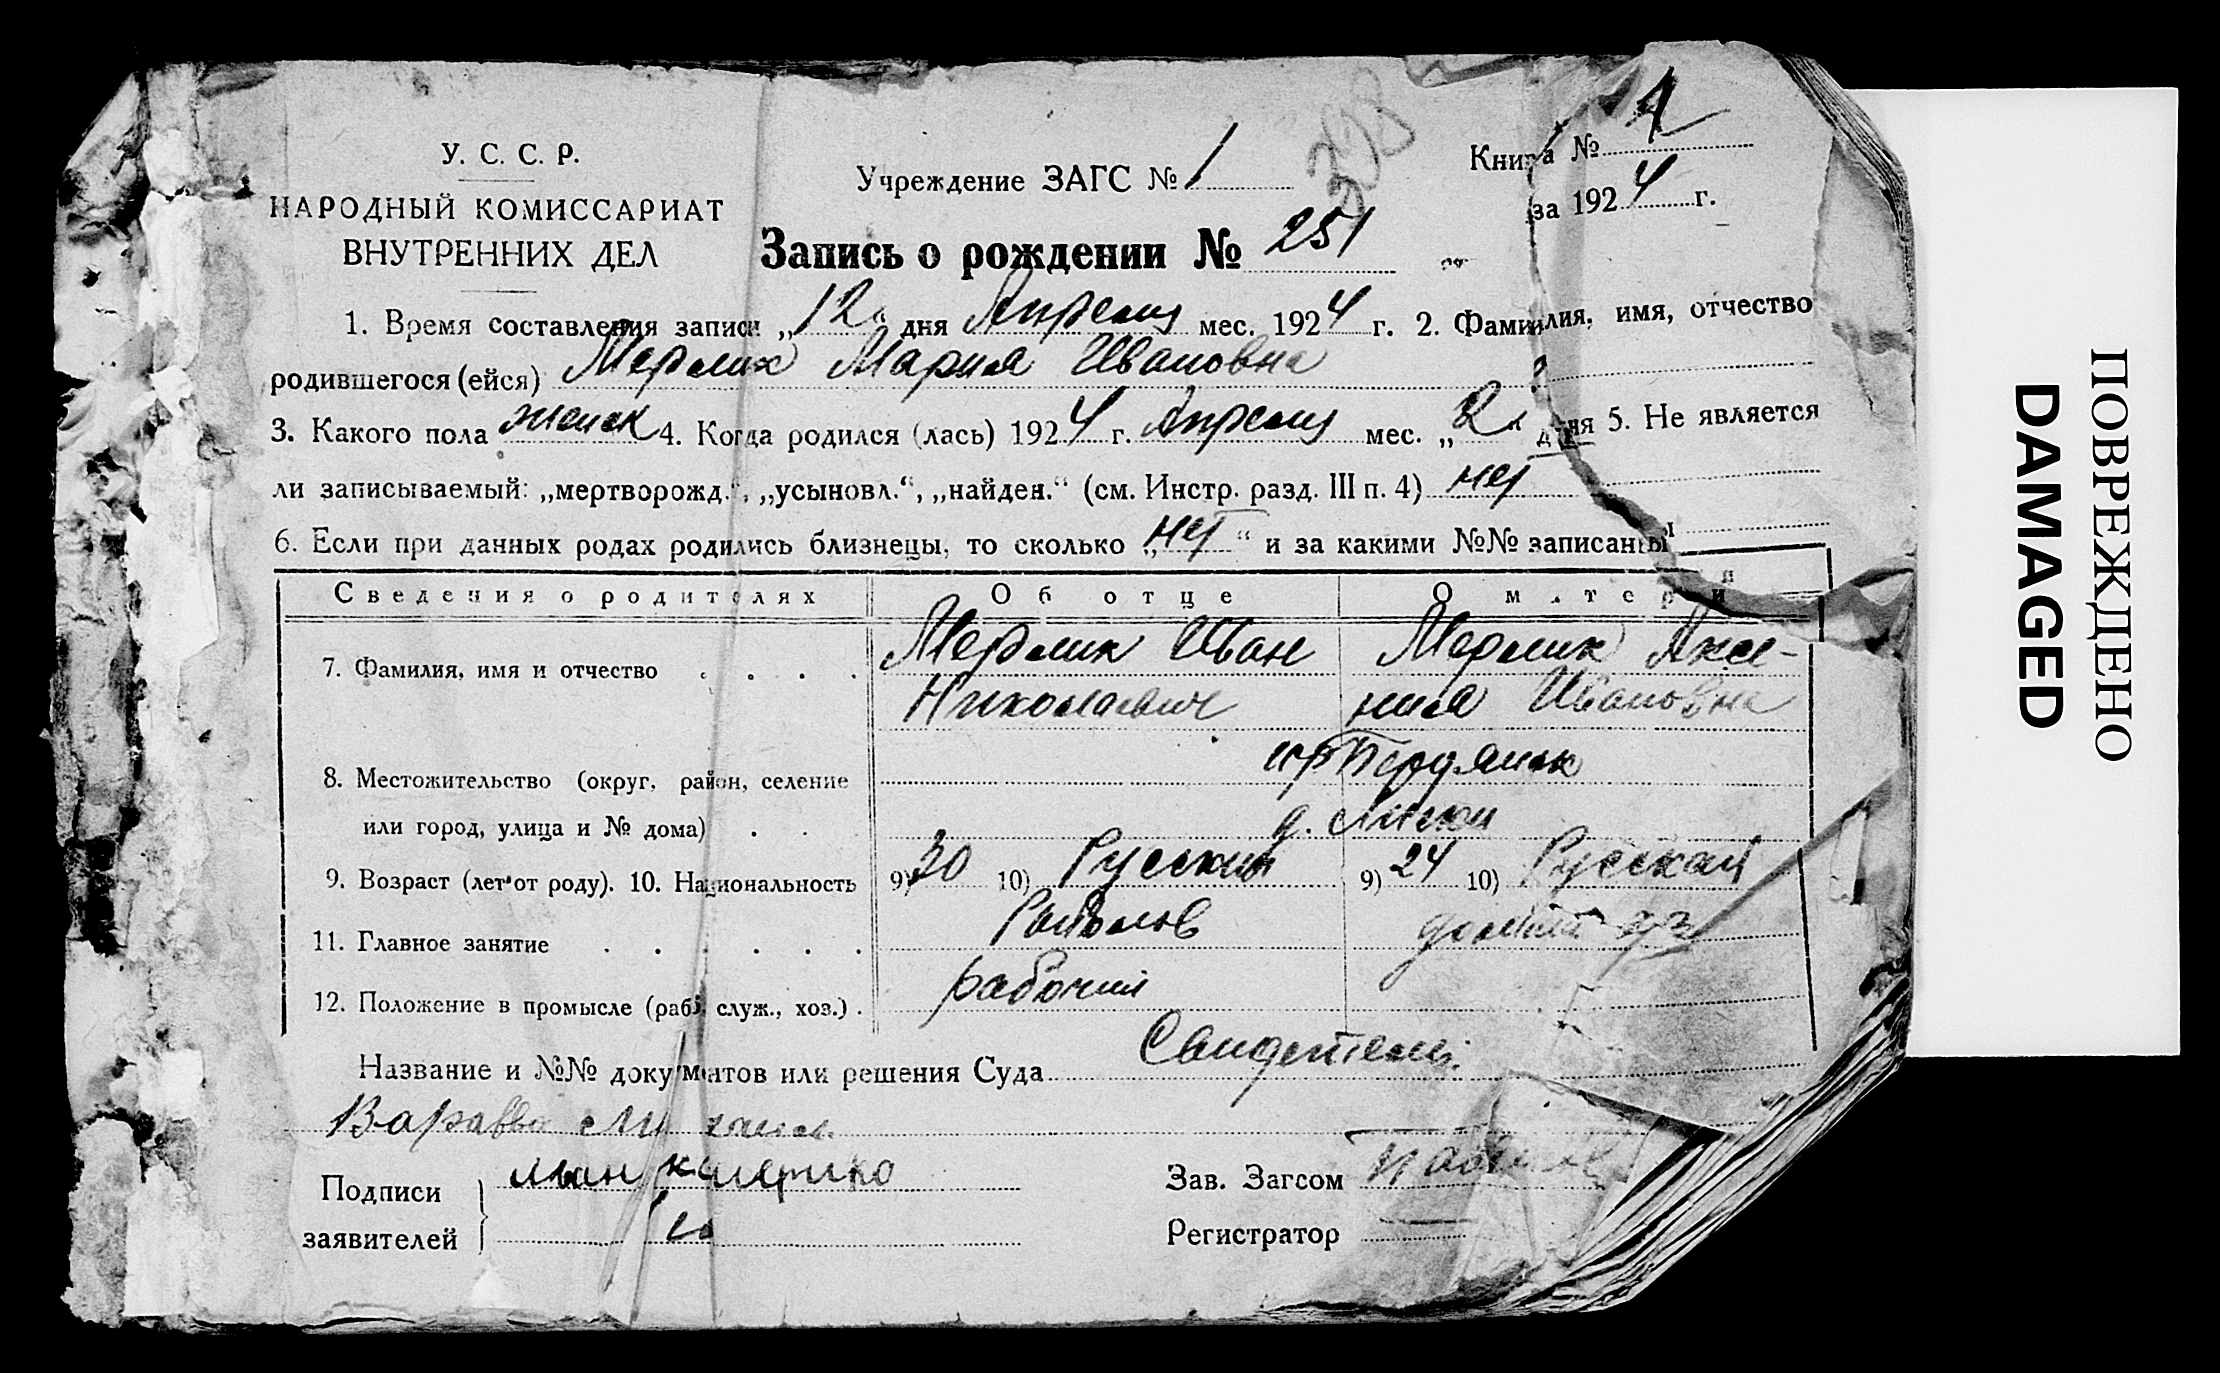 У. С. С. Р.
НАРОДНЫЙ КОМИССАРИАТ
ВНУТРЕННИХ ДЕЛ
Учреждение ЗАГС № 1
Книга № 1
за 1924 г.
Запись о рождении № 251
1. Время составления записи „12“ дня Апреля мес. 1924 г. 2. Фамилия, имя, отчество
родившегося (ейся) Мерлик Мария Ивановна
3. Какого пола женск 4. Когда родился (лась) 1924 г. Апреля мес. „2“ дня 5. Не является
ли записываемый: „мертворожд.“, „усыновл.“, „найден.“ (см. Инстр. разд. III п. 4) нет
6. Если при данных родах родились близнецы, то сколько „нет“ и за какими №№ записаны
Сведения о родителях Об отце О матери
7. Фамилия, имя и отчество . . . . Мерлик Иван Мерлик Аксе-
Николаевич ния Ивановна
гр Бердянск
8. Местожительство (округ, район, селение
или город, улица и № дома) . . . д.
9. Возраст (лет от роду). 10. Национальность 9) 30 10) Русский 9) 24 10) Русская
11. Главное занятие . . . . . . Рыболов домаш хоз
12. Положение в промысле (раб., служ., хоз.) . рабочий
Название и №№ документов или решения Суда Свидетели:
Варавва
Подписи
заявителей
Зав. Загсом
Регистратор
ПОВРЕЖДЕНО
DAMAGED